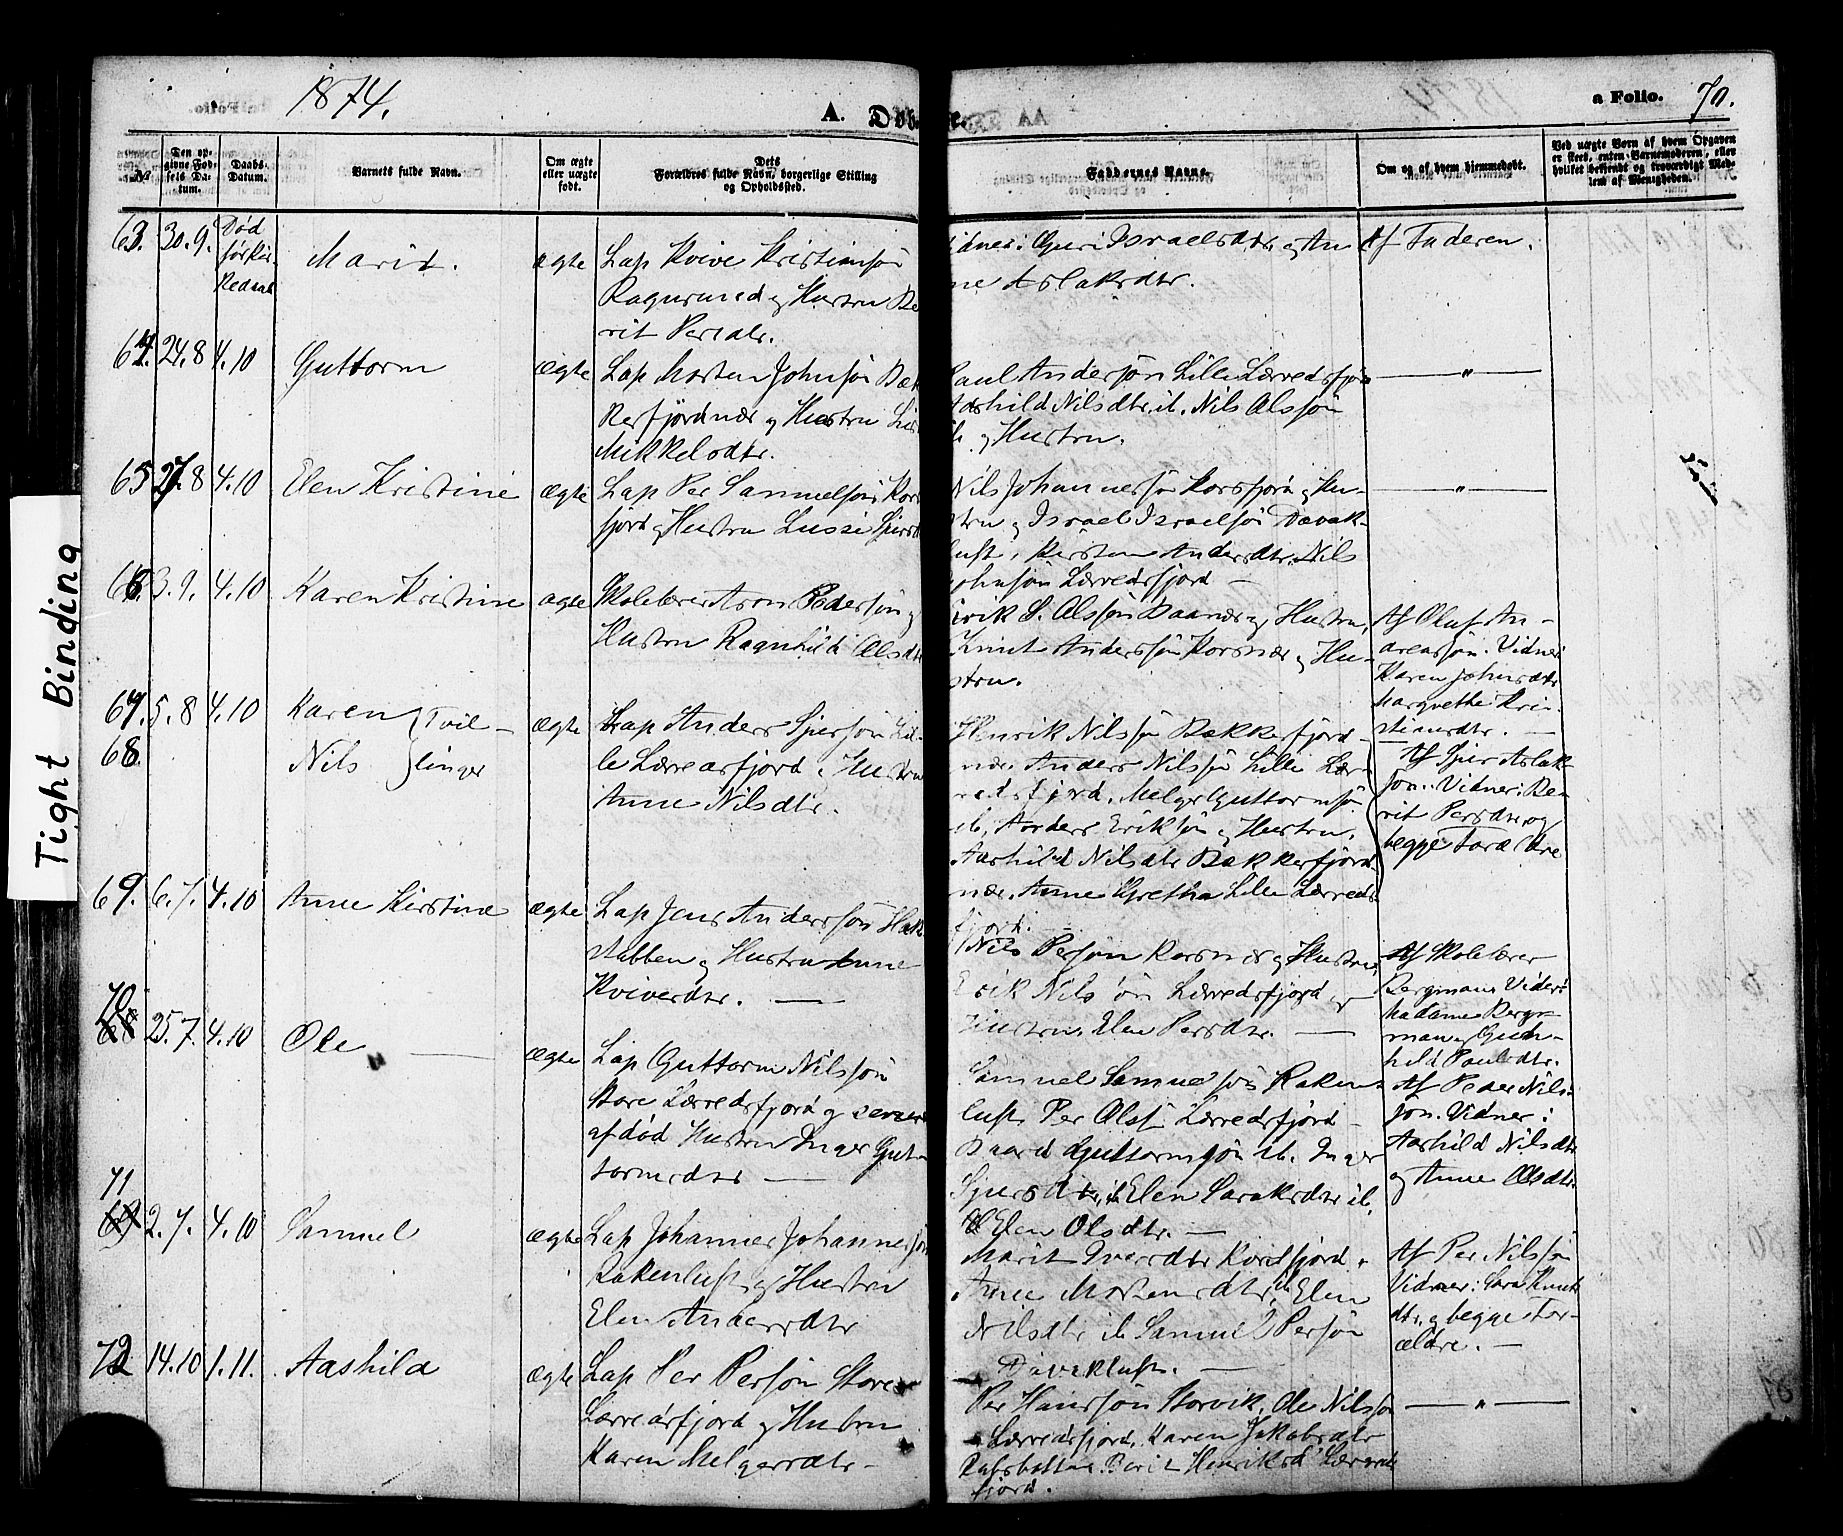 1874.
A. Døb
e.
a Folio. 70.
Tight Binding
No
Den opgivne Fødsels Datum.
Daabs-Datum.
Barnets fulde Navn.
Om ægte eller uægte født.
Dets Forældres fulde Navn, borgerlige Stilling og Opholdssted.
Faddernes Navne.
Om og af hvem hjemmedøbt.
Ved uægte Børn af hvem Opgaven er skeet, enten Barnemoderen, eller hvilket bekjendt og troværdigt Medlem af Menigheden.
63. 30.9. Død
Marit. ægte
Lap Kvive Kristiansøn
og Hustru Be
rit Persdtr.
Vidner: Guri Israelsdtr. og An
ne Aslaksdtr.
Af Faderen.
64. 24.8 4.10 Guttorm ægte
Lap Morten Johnsøn Bek
kerfjordnær og Hustru
Mikkelsdtr.
Paul Andersøn Lille Lærredsfjor
Aashild Nilsdtr. ib. Nils Olssøn
ib. og Hustru.
— " —
65 27.8 4.10 Elen Kristine ægte
Lap Per Samuelsøn Kors
fjord og Hustru Lussi
Nils Johannessøn Korsfjord og Hu-
stru og Israel Israelsøn Davak-
luft, Kirsten Andersdtr. Nils
Johnsøn Lærredsfjord —
— " —
66. 3.9. 4.10 Karen Kristine ægte
Skolelærer Aron Pedersøn og
Hustru Ragnhild Olsdtr
Erik S. Olssøn og Hustru,
Knut Anderssøn Korsnær og Hu-
stru.
Af Oluf An-
dreassøn. Vidner:
Karen Johnsdtr
Margrethe Kri-
stiansdtr. —
67. 5.8 4.10 Karen } Tvil-
68. Nils } linger
ægte
Lap Anders Sjursøn Lil-
le Lærredsfjord og Hustru
Anne Nilsdtr.
Henrik Nilssøn Bekkerfjord-
nær. Anders Nilssøn Lille Lær-
redsfjord. Melger Guttormsøn
ib. Anders Eriksøn og Hustru.
Aashild Nilsdtr Bekkerfjord
nær. Anne Gretha Lille Lærreds
fjord. —
Af Sjur Aslak-
søn. Vidner: Be-
rit Persdtr. og
begge Foræ ldre
69. 6.7. 4.10 Anne Kirstine ægte
Lap Jens Anderssøn Hak
stabben og Hustru Anne
Kviversdtr. —
Nils Persøn Korsnær og Hustru,
Erik Nilssøn Lærredsfjord og
Hustru, Elen Persdtr. —
Af Skolelærer
Bergman. Vidner:
Madame Berg-
man og Gun-
hild Paulsdtr.
70 68 25.7. 4.10 Ole — ægte
Lap Guttorm Nilssøn
Store Lærredsfjord og
afdød Hustru Inger Gut-
tormsdtr —
Samuel Samuelsøn Raken-
luft. Per Olss. Lærredsfjord —
Baard Guttormsøn ib. Inger
Sjursdtr. ib. Elen Saraksdtr ib.
Elen Olsdtr. —
Af Peder Nils-
søn. Vidner:
Aashild Nilsdtr
og Anne Olsdtr.
71 69 2.7. 4.10 Samuel ægte
Lap Johannes Johannessøn
Rakenluft og Hustru
Elen Andersdtr
Marit Iversdtr Korsfjord,
Anne Mortensdtr. ib. Elen
Nilsdtr ib Samuel Persøn
Davekluft. —
Af Per Nilssøn
Vidner: Sara Knuts
dtr. og begge For-
ældre. —
72 14.10 1.11. Aashild ægte
Lap Per Persøn Store
Lærredsfjord og Hustru
Karen Melgersdtr —
Per Hanssøn Storvik, Ole Nilssøn
Lærredsfjord, Karen Jakobsdtr
Rafsbotten. Berit Henriksd Lærreds
fjord.
— " —